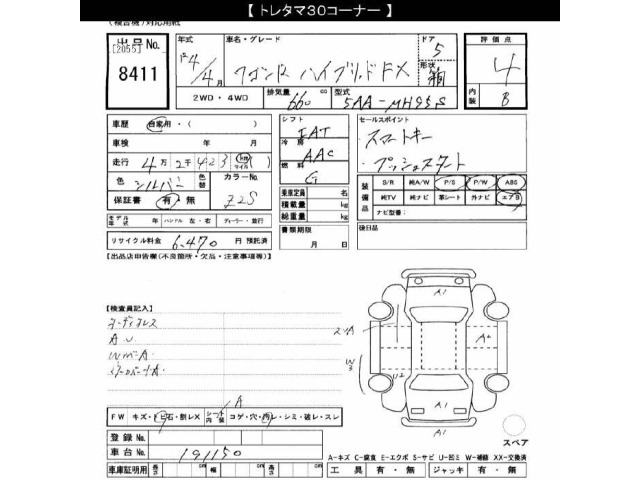 【 トレタマ30コーナー 】
(複合機)対応用紙
出品No.
[2055]
8411
年式
4年
4月
車名・グレード
ワゴンR ハイブリッドFX
ドア
5
形状
箱
評価点
4
内装
B
2WD・4WD
排気量
660 cc
型式
5AA-MH95S
車歴 自家用・( )
車検 年 月
走行 4万2千423 km マイル ( )
色 シルバー 色替 カラーNo. Z2S
保証書 有・無
シフト
IAT
冷房
AAC
燃料
G
セールスポイント
スマートキー
プッシュスタート
乗車定員 名
積載量 kg
総重量 kg
装備品
S/R 純A/W P/S P/W ABS
純TV 純ナビ 革シート 外ナビ エアB
ナビ型番:
モデル年式 年 ハンドル 左・右 ディーラー・並行
書類期限
月 日
後日品
リサイクル料金 6,470 円 預託済
【出品店申告欄(不良箇所・欠品・注意事項等)】
【検査員記入】
オーディオレス
A U
WM-A
A1
A2
W3
U2
A
FW キズ・トビ石・割レX シート内装 コゲ・穴・汚レ・シミ・破レ・スレ
A1
A1
スペア
登録No.
車台No. 191150
A-キズ C-腐食 E-エクボ S-サビ U-凹ミ W-補鈑 XX-交換済
車庫証明用 長さ cm 幅 cm 高さ cm
工具 有・無 ジャッキ 有・無